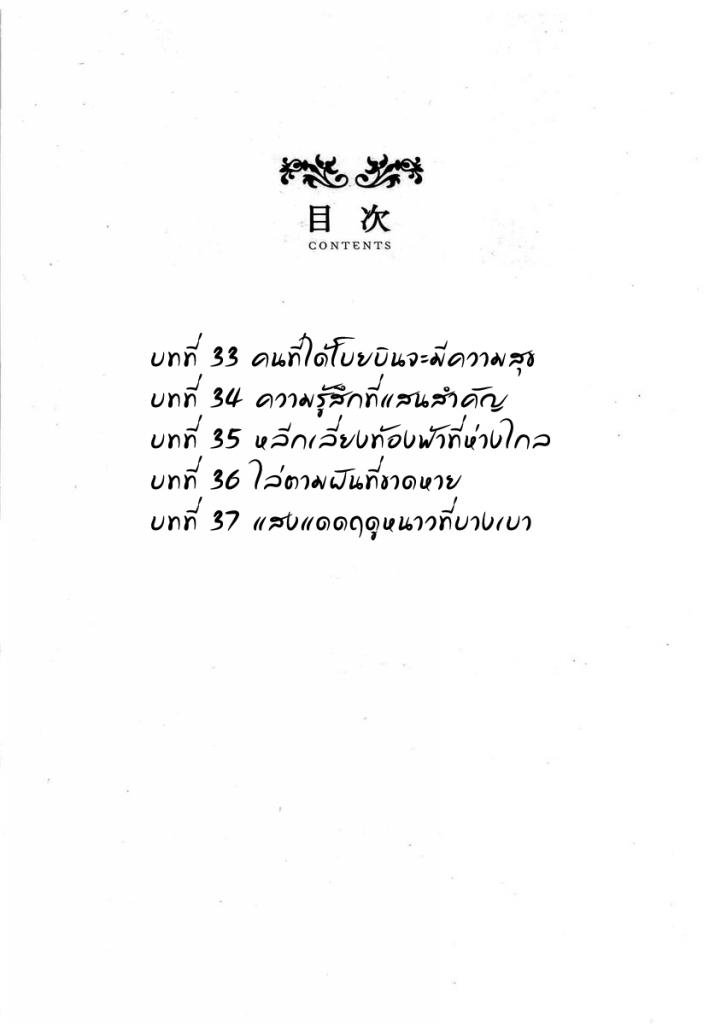 目次
CONTENTS
บทที่ 33 คนที่ได้โบยบินจะมีความสุข
บทที่ 34 ความรู้สึกที่แสนสำคัญ
บทที่ 35 หลีกเลี่ยงท้องฟ้าที่ห่างไกล
บทที่ 36 ไล่ตามฝันที่ขาดหาย
บทที่ 37 แสงแดดฤดูหนาวที่บางเบา